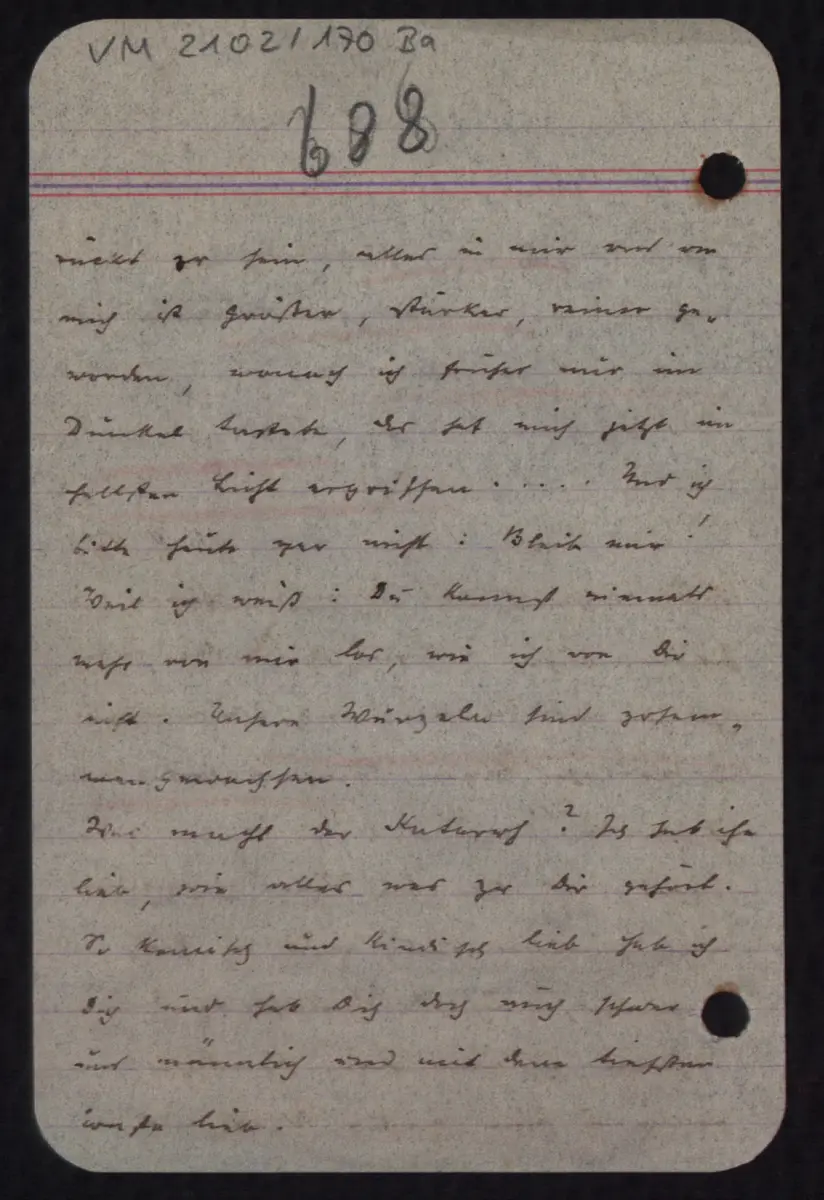 VM 2102/170 Ba
688
rückt zu sein, alles in mir und um
mich ist größer, stärker, reiner ge-
worden, wonach ich früher nur im
Dunkel tastete, das hat mich jetzt im
hellsten Licht ergriffen ..... Und ich
bitte heute gar nicht: Bleib mir!
Weil ich weiß: Du kannst niemals
mehr von mir los, wie ich von Dir
nicht. Unsere Wurzeln sind zusam-
mengewachsen.
Was macht der Katarrh? Ich hab ihn
lieb, wie alles was zu Dir gehört.
So komisch und kindisch lieb hab ich
Dich und hab Dich doch auch schwer
und männlich und mit dem tiefsten
lieb.